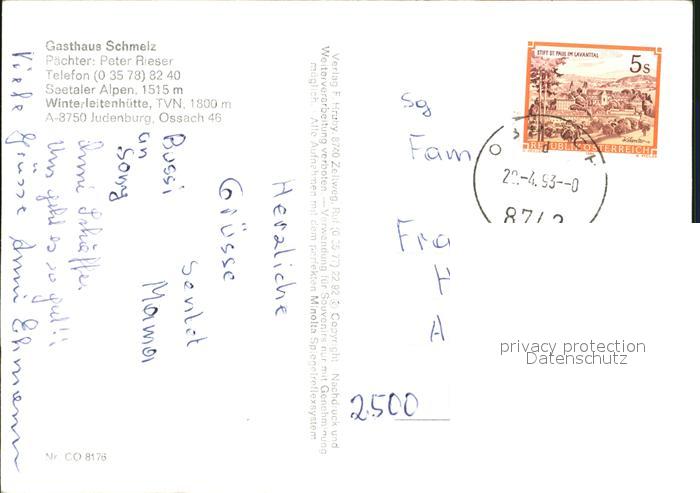 Gasthaus Schmelz
Pächter: Peter Rieser
Telefon (0 35 78) 82 40
Seetaler Alpen, 1515 m
Winterleitenhütte, TVN, 1800 m
A-8750 Judenburg, Ossach 46
Herzliche
Grüsse
sendet
Mama
Bussi
an
Anni Schäffer
Uns geht es so gut!!
Viele Grüsse Anni
Nr. CO 8176
Verlag F. Hruby, 8740 Zeltweg, Ruf (0 35 77) 22 92 © Copyright. Nachdruck und
Weiterverarbeitung verboten. — Verwendung für Souvenirs nur mit Genehmigung
möglich. Alle Aufnahmen mit dem perfekten Minolta Spiegelreflexsystem
Sg
Fam
Fra
H
A
2500
STIFT ST. PAUL IM LAVANTTAL
5s
REPUBLIK ÖSTERREICH
20.-4.93--0
8742
privacy protection
Datenschutz